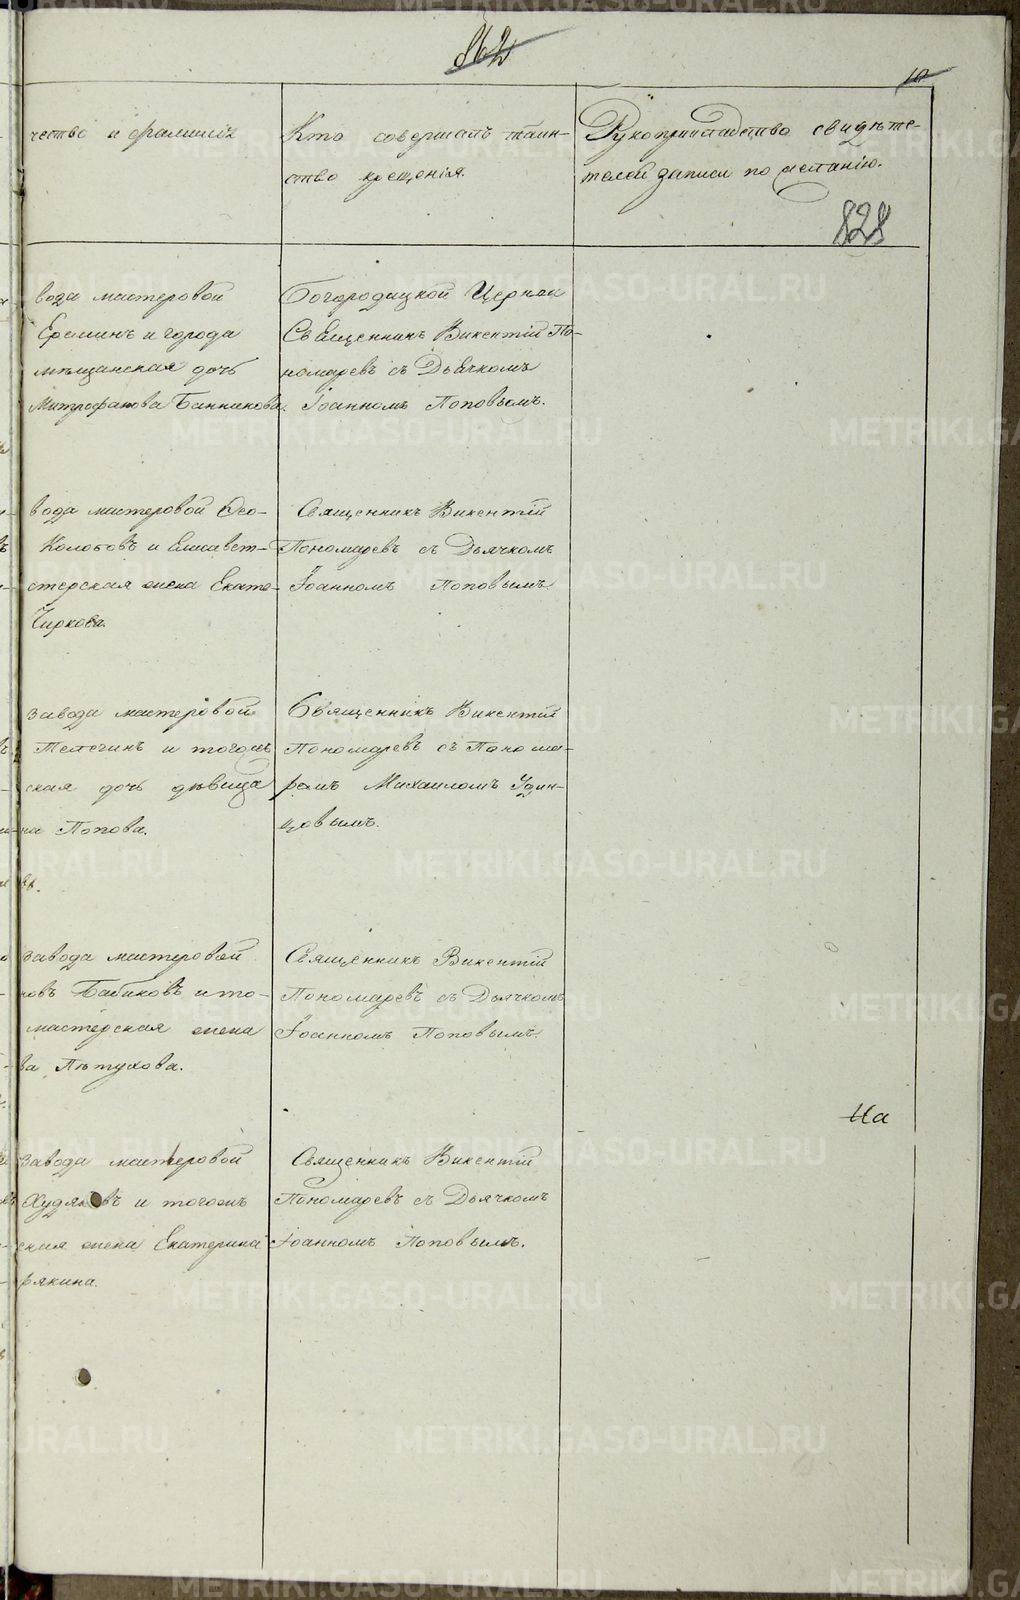 862
10
чество и фамилія
Кто совершалъ таин-
ство крещенія.
Рукоприкладство свидѣте-
лей записи по желанію.
828
вода мастеровой
Ереминъ и города
мѣщанская дочь
Митрофанова Банникова.
Богородицкой Церкви
Священникъ Викентій По-
номаревъ съ Дьячкомъ
Іоанномъ Поповымъ.
вода мастеровой Ѳео-
Колотовъ и Елисавет-
стерская жена Екате-
Чиркова.
Священникъ Викентій
Пономаревъ съ Дьячкомъ
Іоанномъ Поповымъ.
завода мастеровой
Телегинъ и тогожъ
ская дочь дѣвица
на Попова.
Священникъ Викентій
Пономаревъ съ Понома-
ремъ Михаиломъ Удин-
цовымъ.
завода мастеровой
новъ Бабиковъ и то-
мастерская жена
ва Пѣтухова.
Священникъ Викентій
Пономаревъ съ Дьячкомъ
Іоанномъ Поповымъ.
На
завода мастеровой
Худяковъ и тогожъ
ская жена Екатерина
рякина.
Священникъ Викентій
Пономаревъ съ Дьячкомъ
Іоанномъ Поповымъ.
METRIKI.GASO-URAL.RU